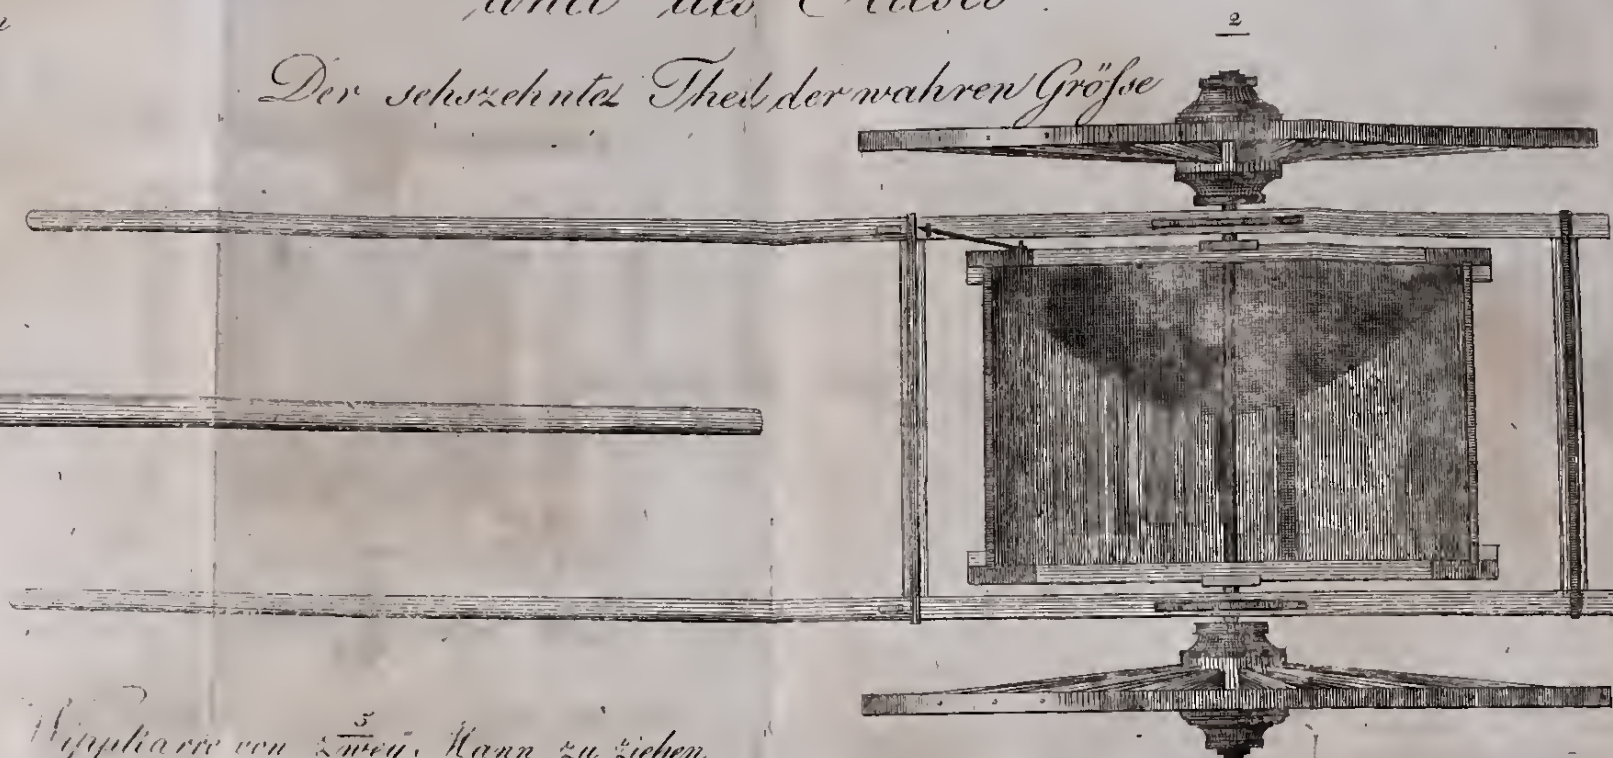 und des
2
Der sehszehnte Theil der wahren Größe
5
Wippkarre von zweÿ Mann zu ziehen